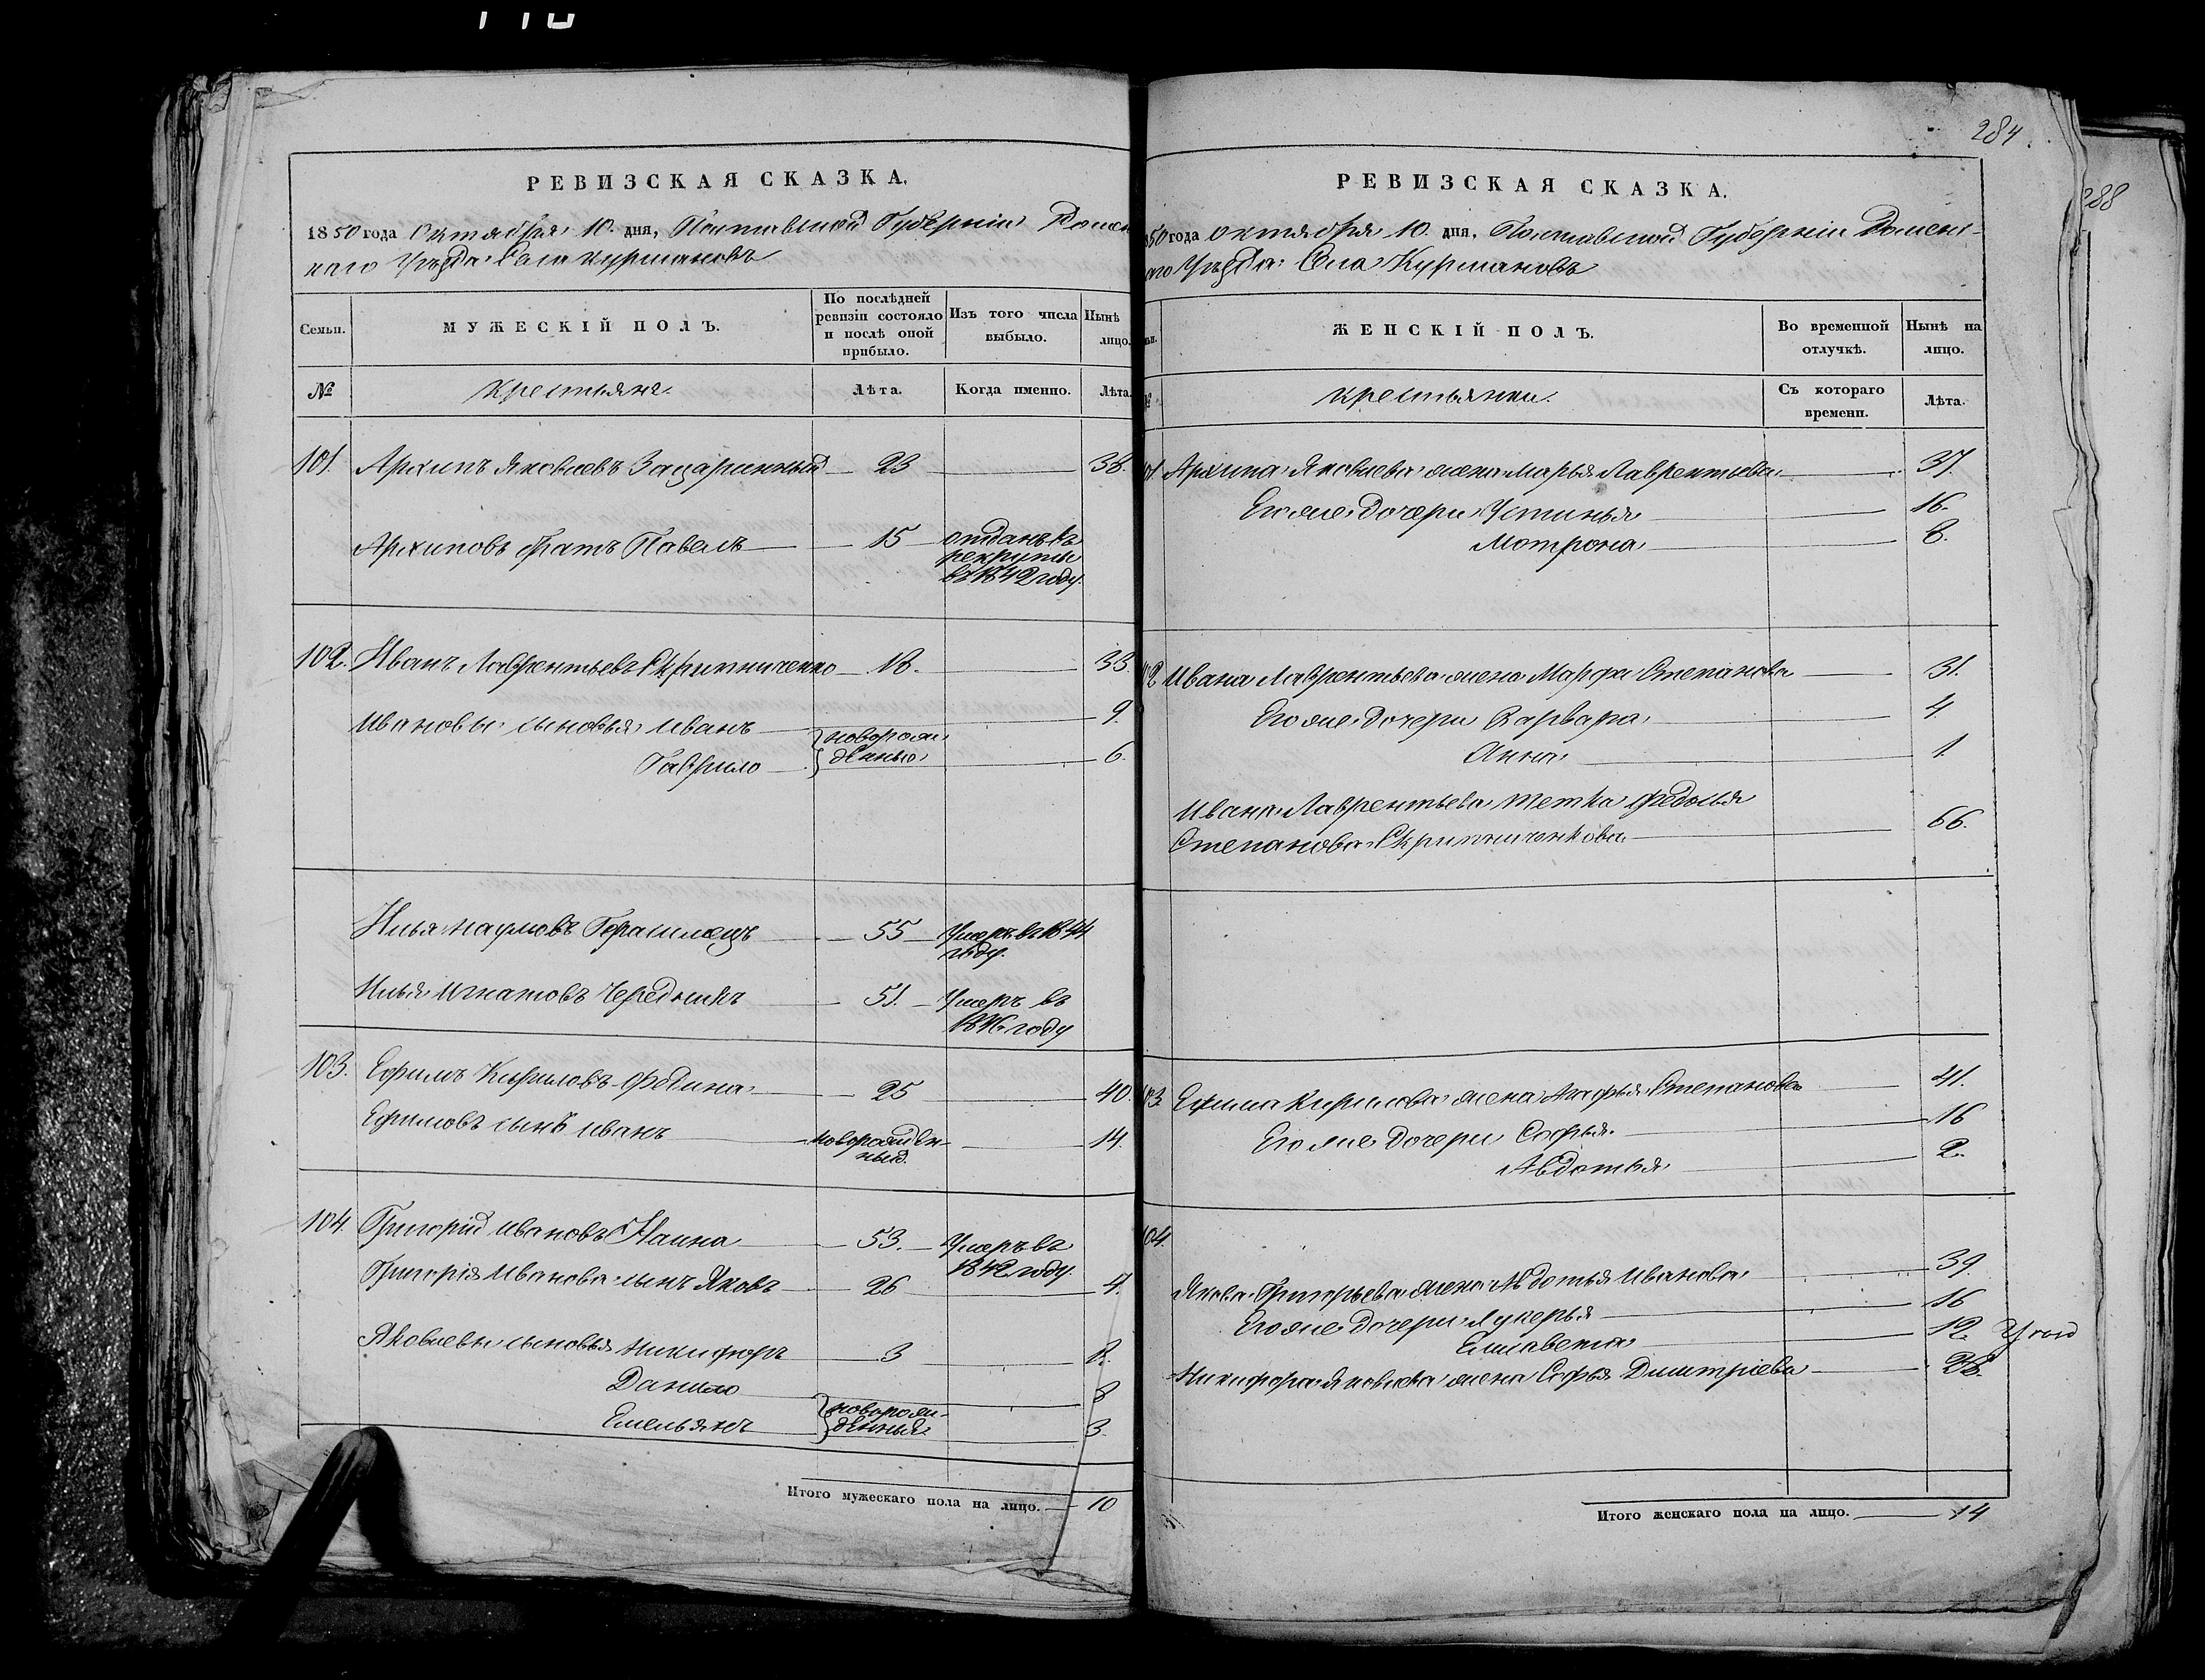 РЕВИЗСКАЯ СКАЗКА.
1850 года Октября 10 дня, Полтавской Губерніи Ромен
каго Уѣзда Села Курмановъ
Семьи.
МУЖЕСКІЙ ПОЛЪ.
По послѣдней ревизіи состояло и послѣ оной прибыло.
Изъ того числа выбыло.
Нынѣ лицо.
№
Крестьяне.
Лѣта.
Когда именно.
Лѣта.
101. Архипъ Яковлевъ 23 38.
Архиповъ братъ Павелъ 15 отданъ въ
рекруты
въ 1842 году.
102. Иванъ Лаврентьевъ Скрипниченко 18. 33.
Ивановы сыновья Иванъ 9.
новорож
денные
Гаврило 6.
Илья Наумовъ 55 Умеръ въ 1844
году.
Илья Игнатовъ Чередникъ 51. Умеръ въ
1846 году
103. Ефимъ Кириловъ 25 40.
Ефимовъ сынъ Иванъ новорожден-
ный. 14.
104. Григорій Ивановъ 53. Умеръ въ
1842 году.
Григорія Иванова сынъ Яковъ 26 4
Яковлевы сыновья Никифоръ 3
Данило 8
новорож-
денныя
Емельянъ 3.
Итого мужескаго пола на лицо. 10
284.
РЕВИЗСКАЯ СКАЗКА.
850 года октября 10 дня, Полтавской Губерніи Роменс-
аго Уѣзда Села Курмановъ
ЖЕНСКІЙ ПОЛЪ.
Во временной отлучкѣ.
Нынѣ на лицо.
крестьянки.
Съ котораго времени.
Лѣта.
Архипа Яковлева жена Марья Лаврентьева 37.
Его же дочери Устинья 16.
Мотрона 8.
Ивана Лаврентьева жена Марфа Степанова 31.
Его же дочери Варвара 4.
Анна 1.
Ивана Лаврентьева тетка Федосья
Степанова Скрипниченкова 66.
103 Ефима Кирилова жена Агафья Степанова 41.
Его же дочери Софья 16
Авдотья 2.
104.
Якова Григорьева жена Авдотья Иванова 39.
Его же дочери Лукерья 16
Елисавета 12.
Никифора Яковлева жена Софья Дмитріева
Итого женскаго пола на лицо. 14
288